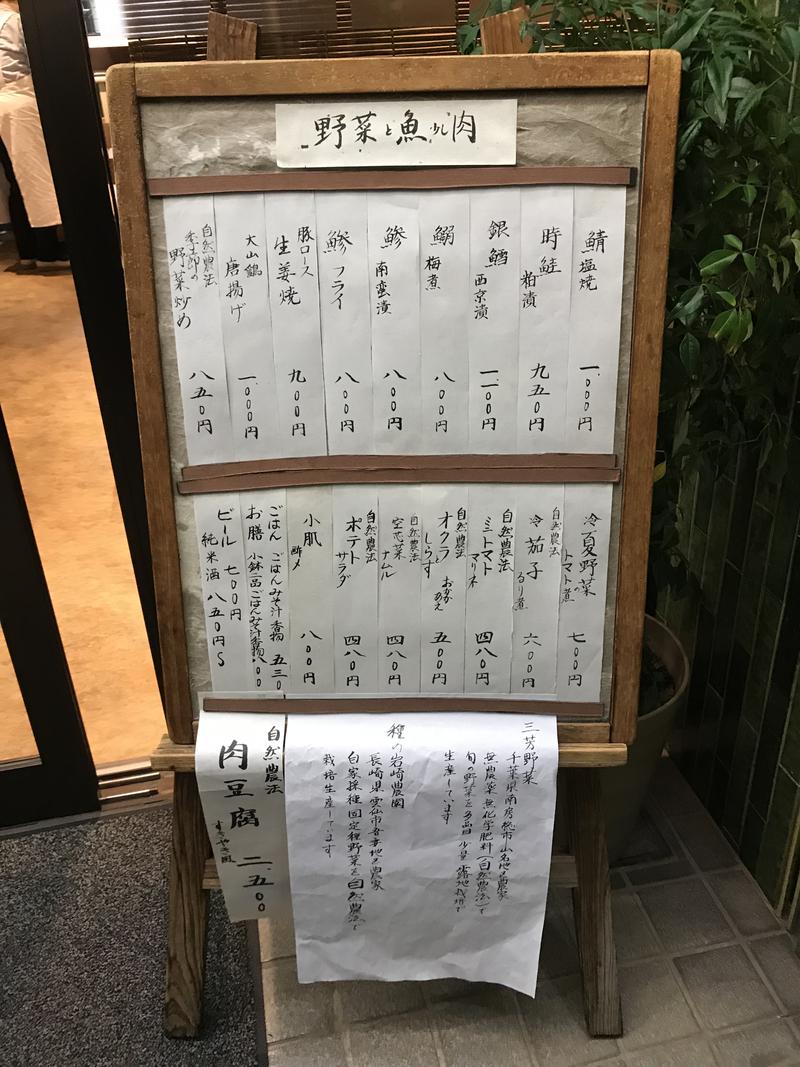 野菜と魚少し肉
鯖塩焼 一、〇〇〇円
時鮭粕漬 九五〇円
銀鱈西京漬 一、一〇〇円
鰯梅煮 八〇〇円
鯵南蛮漬 八〇〇円
鯵フライ 八〇〇円
豚ロース生姜焼 九〇〇円
大山鶏唐揚げ 一、〇〇〇円
自然農法
野菜炒め 八五〇円
冷夏野菜のトマト煮 七〇〇円
自然農法
冷茄子るり煮 六〇〇円
自然農法
ミニトマトマリネ 四八〇円
自然農法
オクラとしらすおかかあえ 五〇〇円
自然農法
空芯菜ナムル 四八〇円
自然農法
ポテトサラダ 四八〇円
小肌酢〆 八〇〇円
ごはん ごはんみそ汁香物 五三〇
お膳 小鉢一品ごはんみそ汁香物 八〇〇
ビール 七〇〇円
純米酒 八五〇円〜
自然農法
肉豆腐 二、五〇〇
すきやき風
三芳野菜
千葉県南房総市山名地区農家
無農薬無化学肥料(自然農法)で
旬の野菜を多品目少量露地栽培で
生産しています
種の岩崎農園
長崎県雲仙市吾妻地区農家
自家採種固定種野菜を自然農法で
栽培生産しています